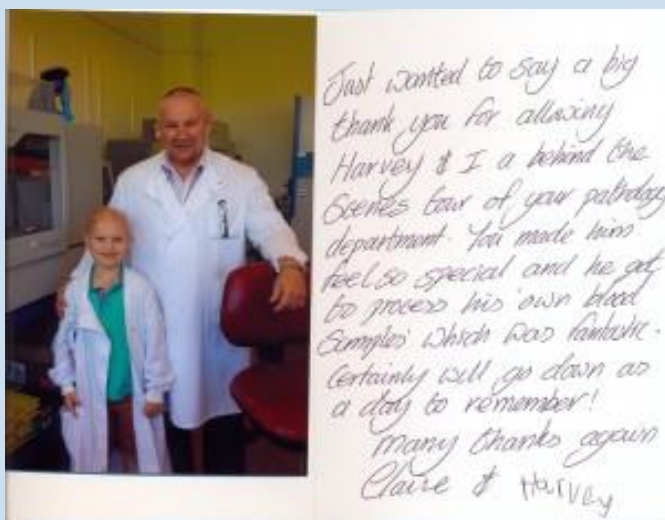 Just wanted to say a big
thank you for allowing
Harvey & I a behind the
Scenes tour of your pathology
department. You made him
feel so special and he got
to process his 'own blood
Samples' which was fantastic.
Certainly will go down as
a day to remember!
many thanks again
Claire & Harvey